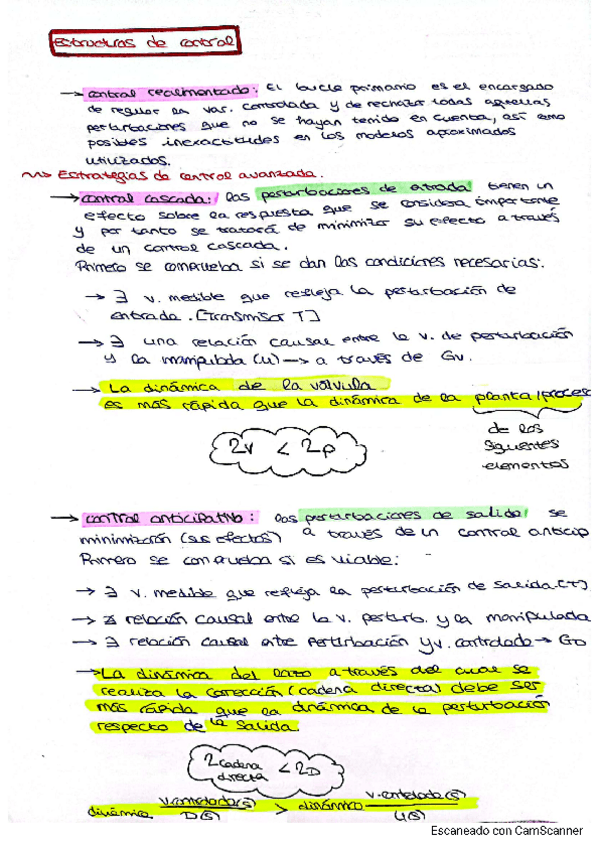 Estructuras de control
→ control realimentado: El bucle primario es el encargado
de regular la var. controlada y de rechazar todas aquellas
perturbaciones que no se hayan tenido en cuenta, así como
posibles inexactitudes en los modelos aproximados
utilizados.
Estrategias de control avanzada.
→ control cascada: las perturbaciones de entrada tienen un
efecto sobre la respuesta que se considera importante
y por tanto se tratará de minimizar su efecto a través
de un control cascada.
Primero se comprueba si se dan las condiciones necesarias:
→ ∃ v. medible que refleja la perturbación de
entrada. [Transmisor T]
→ ∃ una relación causal entre la v. de perturbación
y la manipulada (u) → a través de Gv.
→ La dinámica de la válvula
es más rápida que la dinámica de la planta/proceso
de los
siguientes
elementos
2v < 2p
→ control anticipativo: las perturbaciones de salida se
minimizarán (sus efectos) a través de un control anticip
Primero se comprueba si es viable:
→ ∃ v. medible que refleja la perturbación de salida. (T)
→ ∄ relación causal entre la v. perturb. y la manipulada
→ ∃ relación causal entre perturbación y v. controlada → GD
→ La dinámica del lazo a través del cual se
realiza la corrección (cadena directa) debe ser
más rápida que la dinámica de la perturbación
respecto de la salida.
2cadena directa < 2D
dinámica v.controlada(s) / D(s) > dinámica v.controlada(s) / U(s)
Escaneado con CamScanner